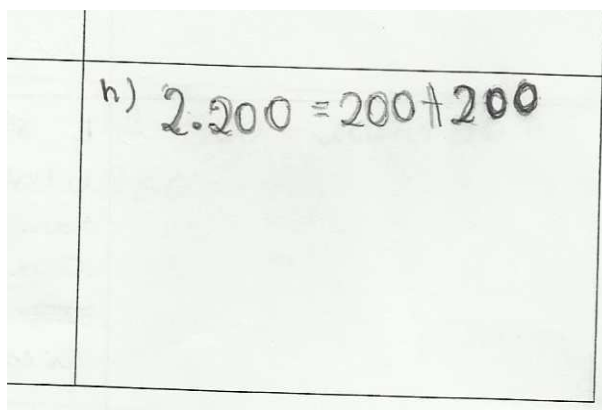 h) 2.200 = 200+200